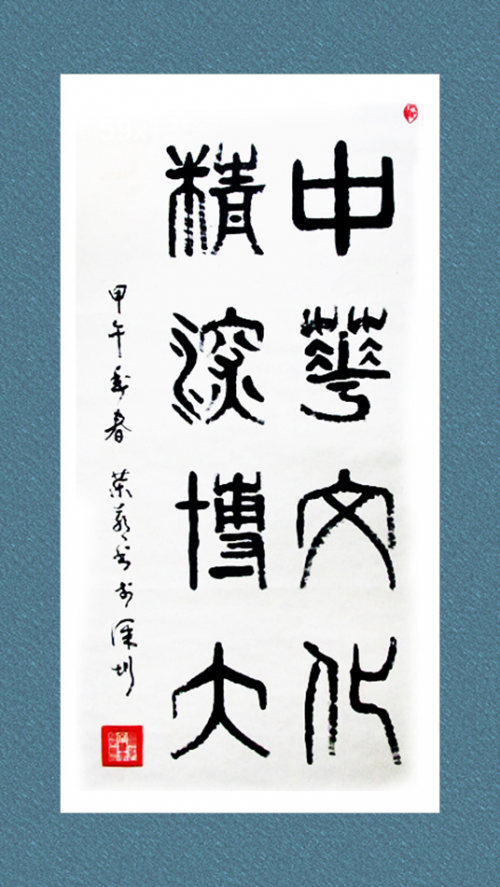 中華文化
精深博大
甲午年春 荣毅书於深圳